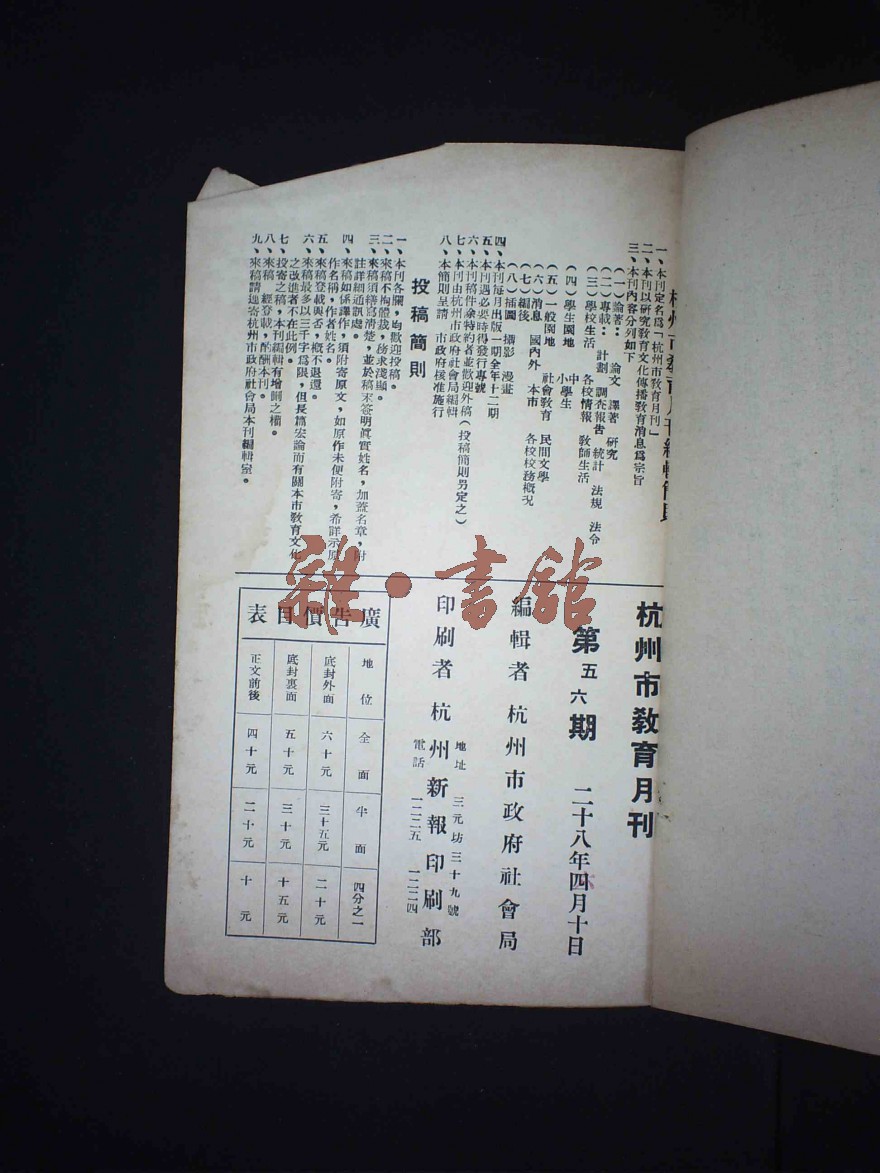 杭州市教育月刊編輯簡則
一、本刊定名爲「杭州市教育月刊」
二、本刊以研究教育文化傳播教育消息爲宗旨
三、本刊內容分列如下
(一)論著：論文 譯著 研究
(二)專載：計劃 調查報告 統計 法規 法令
(三)學校生活 各校情報 教師生活
(四)學生園地 中小學生
(五)一般園地 社會教育 民間文學
(六)消息 國內外 本市 各校校務概況
(七)編後
(八)插圖 攝影 漫畫
四、本刊每月出版一期全年十二期
五、本刊遇必要時得發行專號
六、本刊稿件除特約者並歡迎外稿(投稿簡則另定之)
七、本刊由杭州市政府社會局編輯
八、本簡則呈請 市政府核准施行
投稿簡則
一、本刊各欄，均歡迎投稿。
二、來稿不拘體裁，務求淺顯。
三、來稿須繕寫清楚，並於稿末簽明眞實姓名，加蓋名章，附
註詳細通訊處。
四、來稿如係譯作，須附寄原文，如原作未便附寄，希詳示原
作名稱，作者姓名。
五、來稿登載與否，概不退還。
六、來稿最多以三千字爲限，但長篇宏論而有關本市教育文化
之改進者不在此例。
七、投寄之稿，本刊編輯有增刪之權。
八、來稿一經登載，酌酬本刊。
九、來稿請逕寄杭州市政府社會局本刊編輯室。
雜·書館
杭州市教育月刊
第五六期 二十八年四月十日
六
編輯者 杭州市政府社會局
印刷者 杭州新報印刷部
地址 三元坊三十九號
電話 一二二五 一二二四
廣告價目表
地位 全面 半面 四分之一
底封外面 六十元 三十五元 二十元
底封裏面 五十元 三十元 十五元
正文前後 四十元 二十元 十元